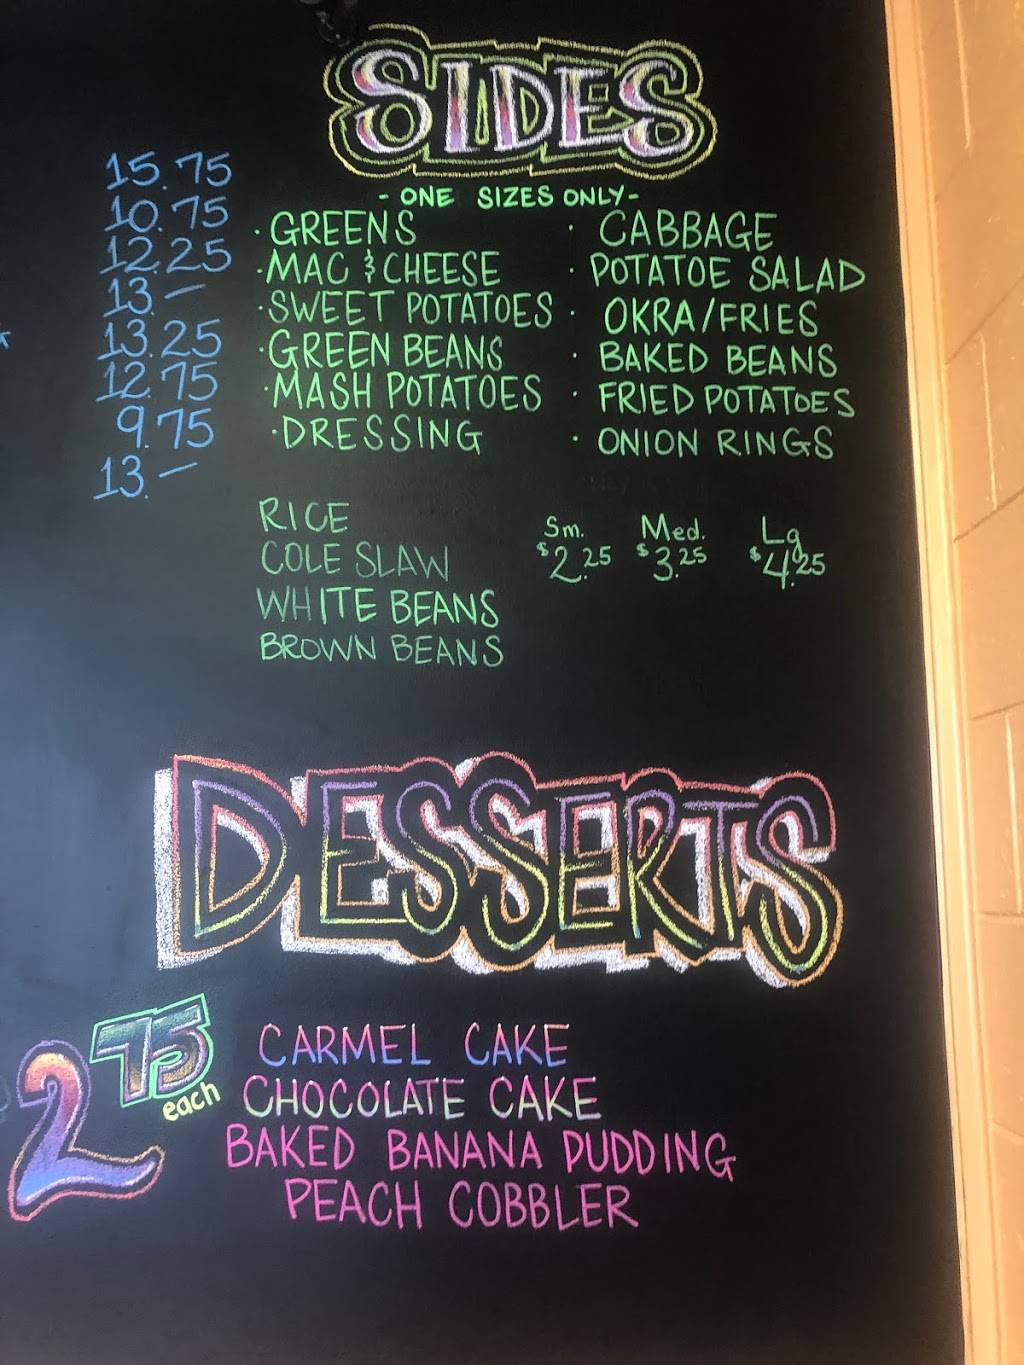 SIDES
- ONE SIZES ONLY -
15.75
10.75
12.25
13.—
13.25
12.75
9.75
13.—
· GREENS
· MAC & CHEESE
· SWEET POTATOES
· GREEN BEANS
· MASH POTATOES
· DRESSING
· CABBAGE
· POTATOE SALAD
· OKRA/FRIES
· BAKED BEANS
· FRIED POTATOES
· ONION RINGS
RICE
COLE SLAW
WHITE BEANS
BROWN BEANS
Sm. Med. Lg
$2.25 $3.25 $4.25
DESSERTS
2 75 each
CARMEL CAKE
CHOCOLATE CAKE
BAKED BANANA PUDDING
PEACH COBBLER